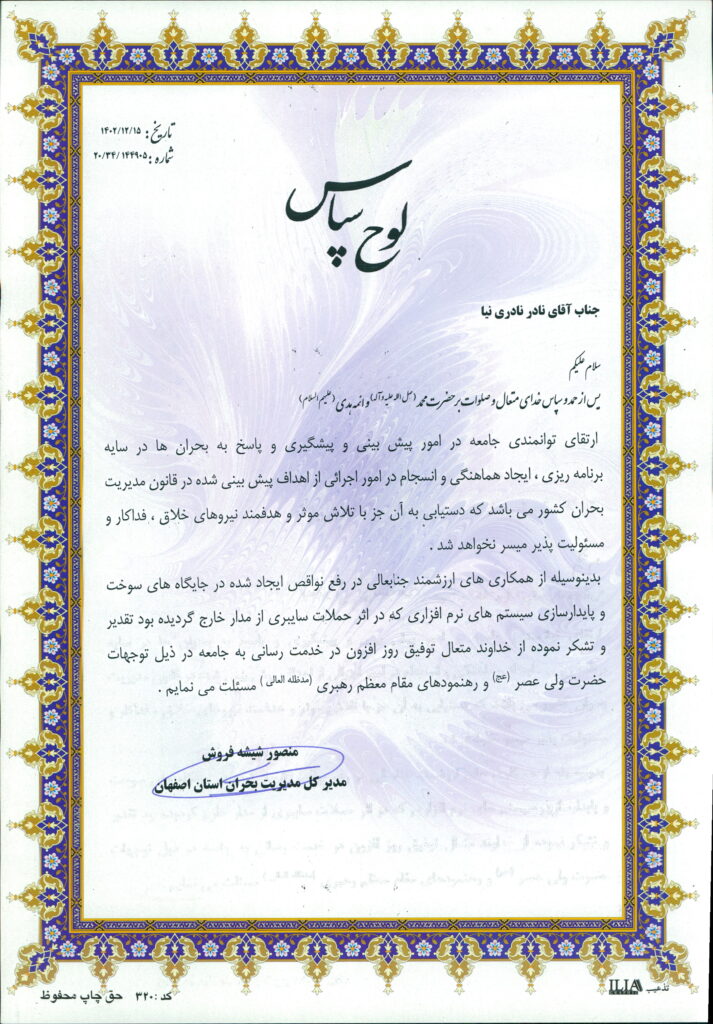 تاریخ: ۱۴۰۲/۱۲/۱۵
شماره: ۲۰/۳۴/۱۴۴۹۰۵
لوح سپاس
جناب آقای نادر نادری نیا
سلام علیکم
پس از حمد و سپاس خدای متعال و صلوات بر حضرت محمد (صل الله علیه و آله) و ائمه هدی (علیهم السلام)
ارتقای توانمندی جامعه در امور پیش بینی و پیشگیری و پاسخ به بحران ها در سایه
برنامه ریزی ، ایجاد هماهنگی و انسجام در امور اجرائی از اهداف پیش بینی شده در قانون مدیریت
بحران کشور می باشد که دستیابی به آن جز با تلاش موثر و هدفمند نیروهای خلاق ، فداکار و
مسئولیت پذیر میسر نخواهد شد .
بدینوسیله از همکاری های ارزشمند جنابعالی در رفع نواقص ایجاد شده در جایگاه های سوخت
و پایدارسازی سیستم های نرم افزاری که در اثر حملات سایبری از مدار خارج گردیده بود تقدیر
و تشکر نموده از خداوند متعال توفیق روز افزون در خدمت رسانی به جامعه در ذیل توجهات
حضرت ولی عصر (عج) و رهنمودهای مقام معظم رهبری (مدظله العالی) مسئلت می نمایم .
منصور شیشه فروش
مدیر کل مدیریت بحران استان اصفهان
تذهیب ILIA
کد : ۳۲۰ حق چاپ محفوظ